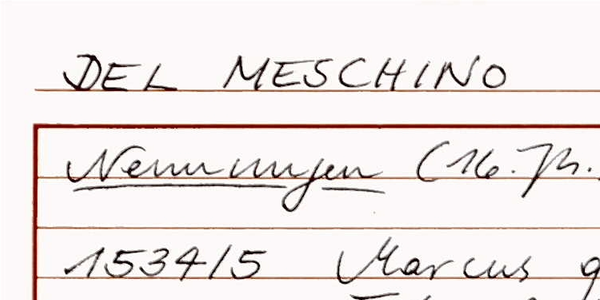 DEL MESCHINO
Nennungen (16. Jh.
1534/5 Marcus